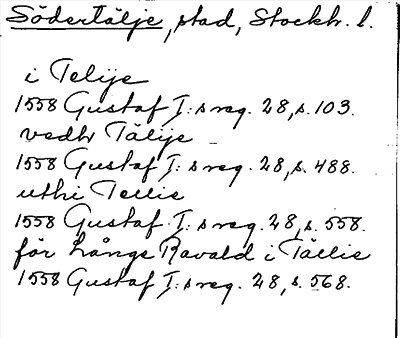 Södertälje, stad, Stockh. l.
i Telije
1558 Gustaf I:s reg. 28, s. 103.
vedh Tälije
1558 Gustaf I:s reg. 28, s. 488.
uthi Tellie
1558 Gustaf I:s reg. 28, s. 558.
för Långe Ravald i Tällie
1558 Gustaf I:s reg. 28, s. 568.